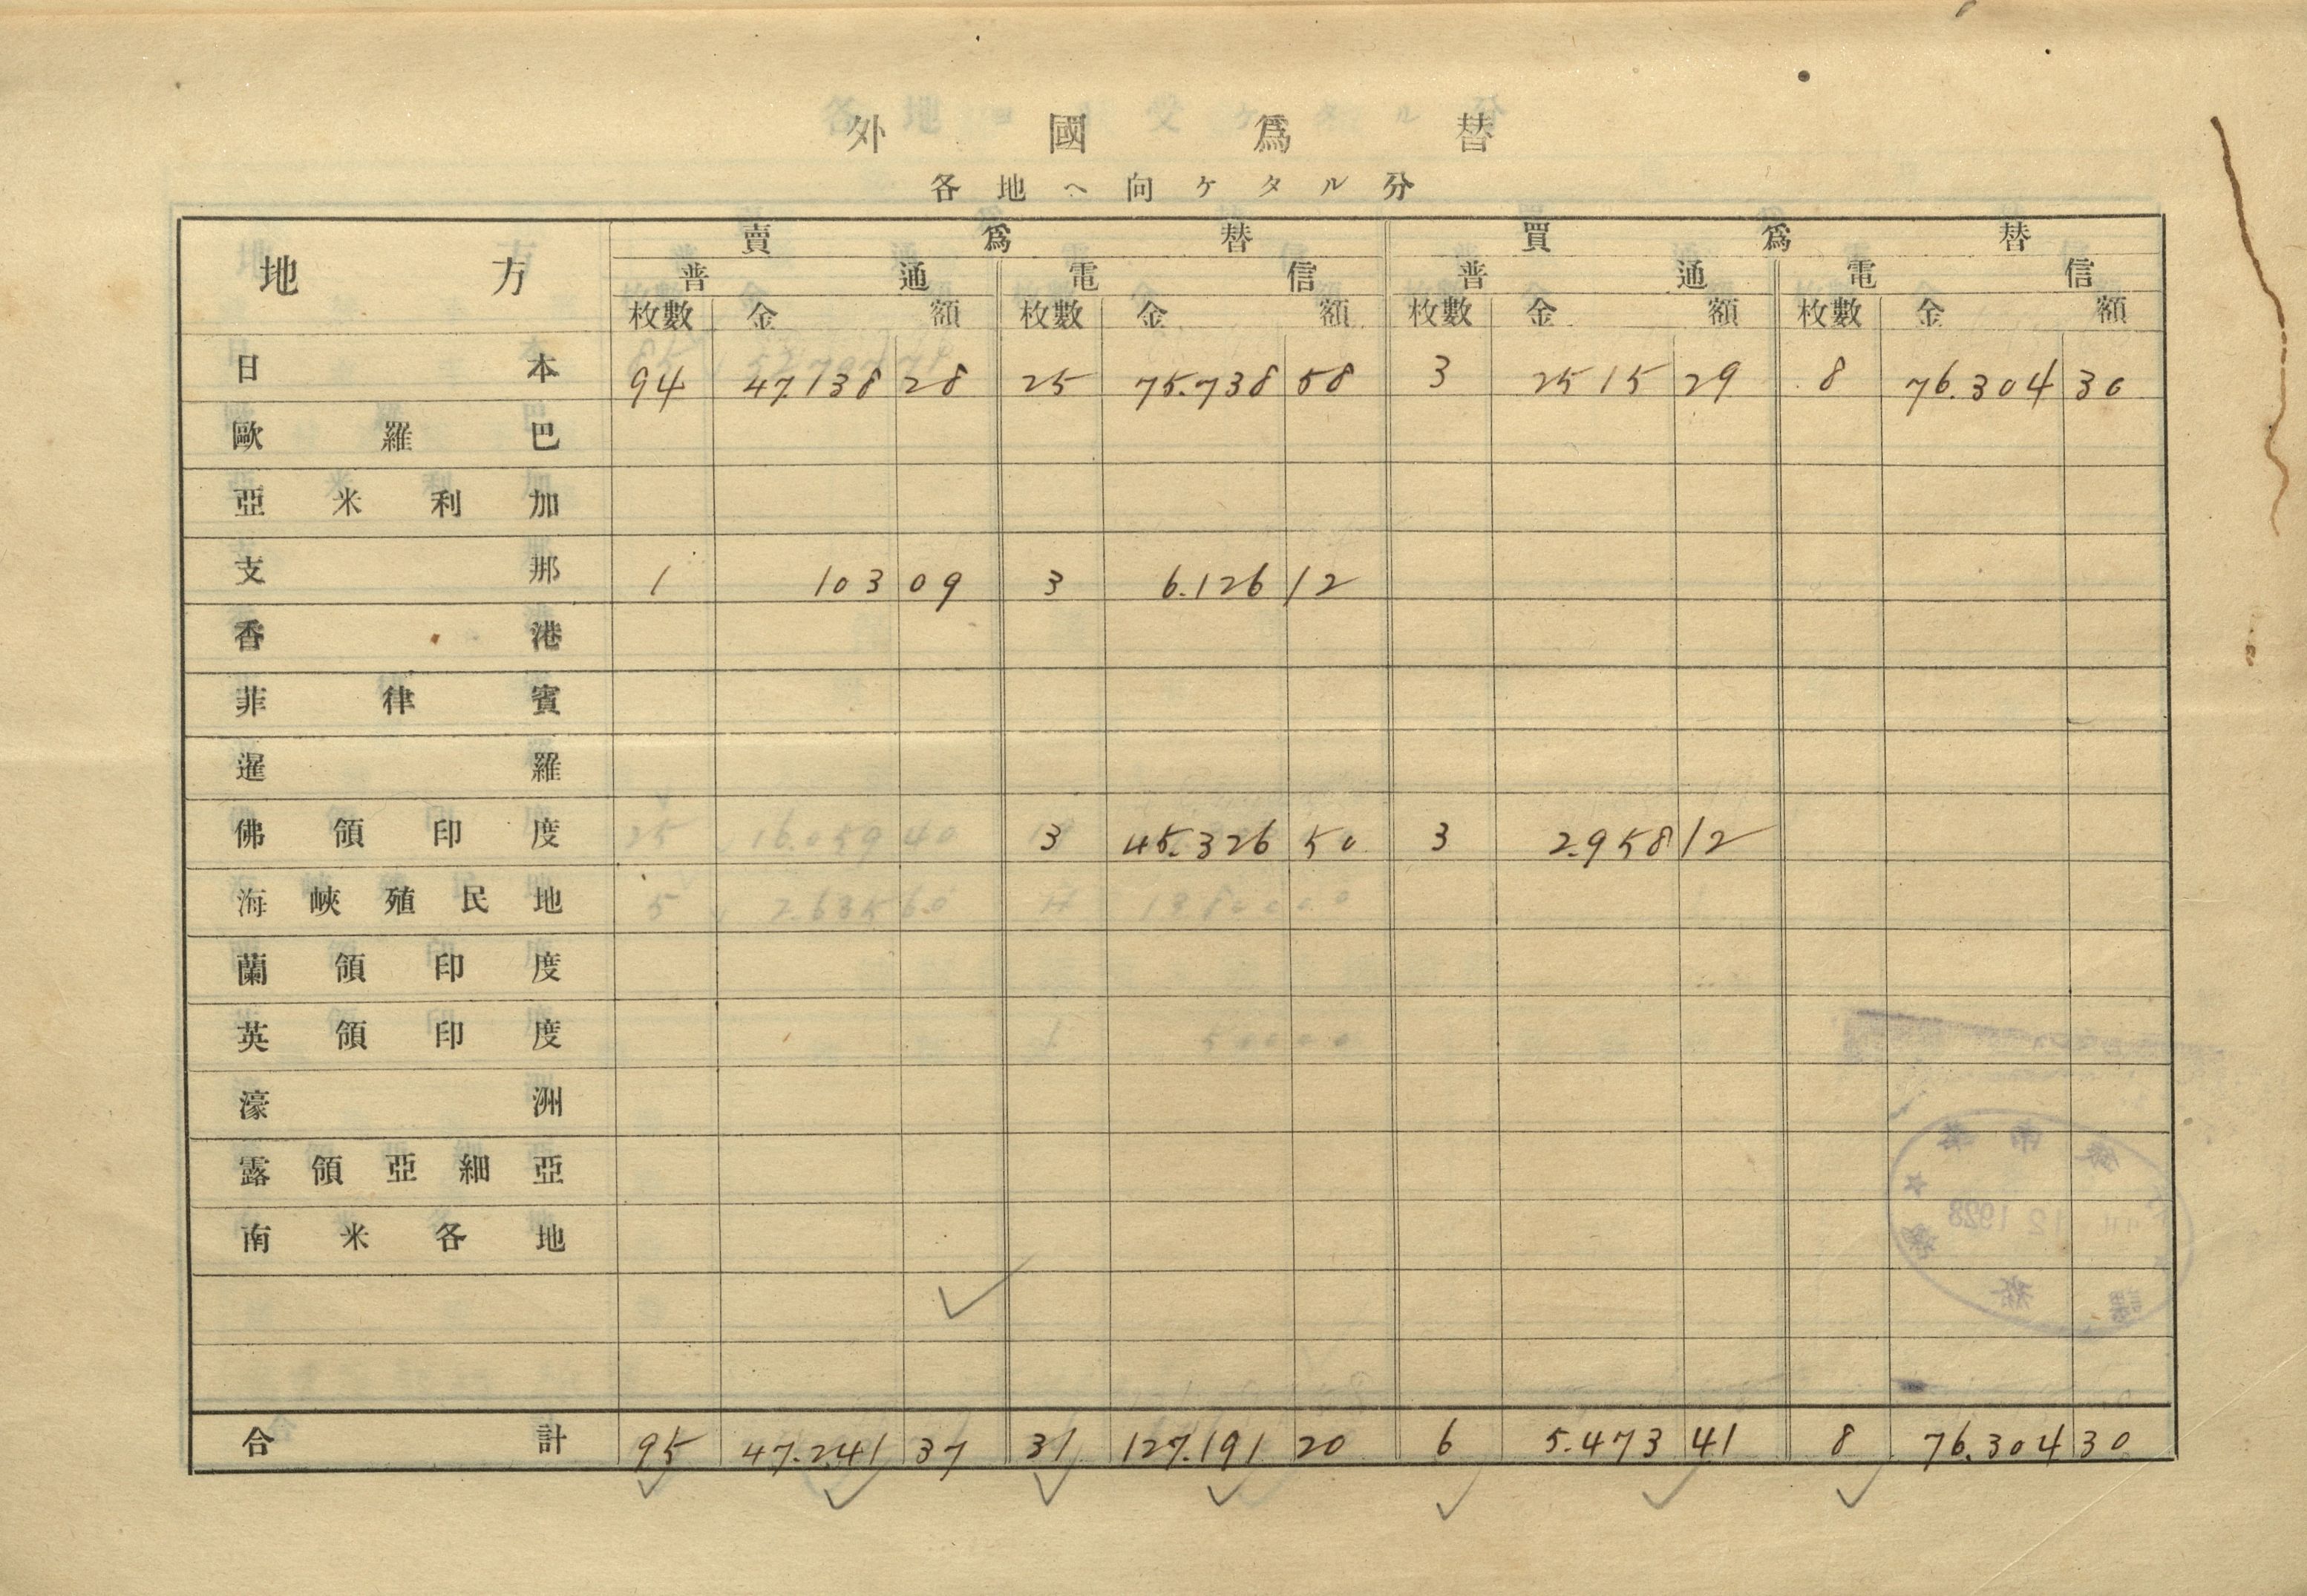 外國爲替
各地ヘ向ケタル分
地方 賣爲替 買爲替
普通 電信 普通 電信
枚數 金額 枚數 金額 枚數 金額 枚數 金額
日本 94 47.138 28 25 75.738 58 3 2515 29 8 76.304 30
歐羅巴
亞米利加
支那 1 103 09 3 6.126 12
香港
菲律賓
暹羅
佛領印度 3 45.326 50 3 2.958 12
海峽殖民地
蘭領印度
英領印度
濠洲
露領亞細亞
南米各地
合計 95 47.241 37 31 127.191 20 6 5.473 41 8 76.304 30